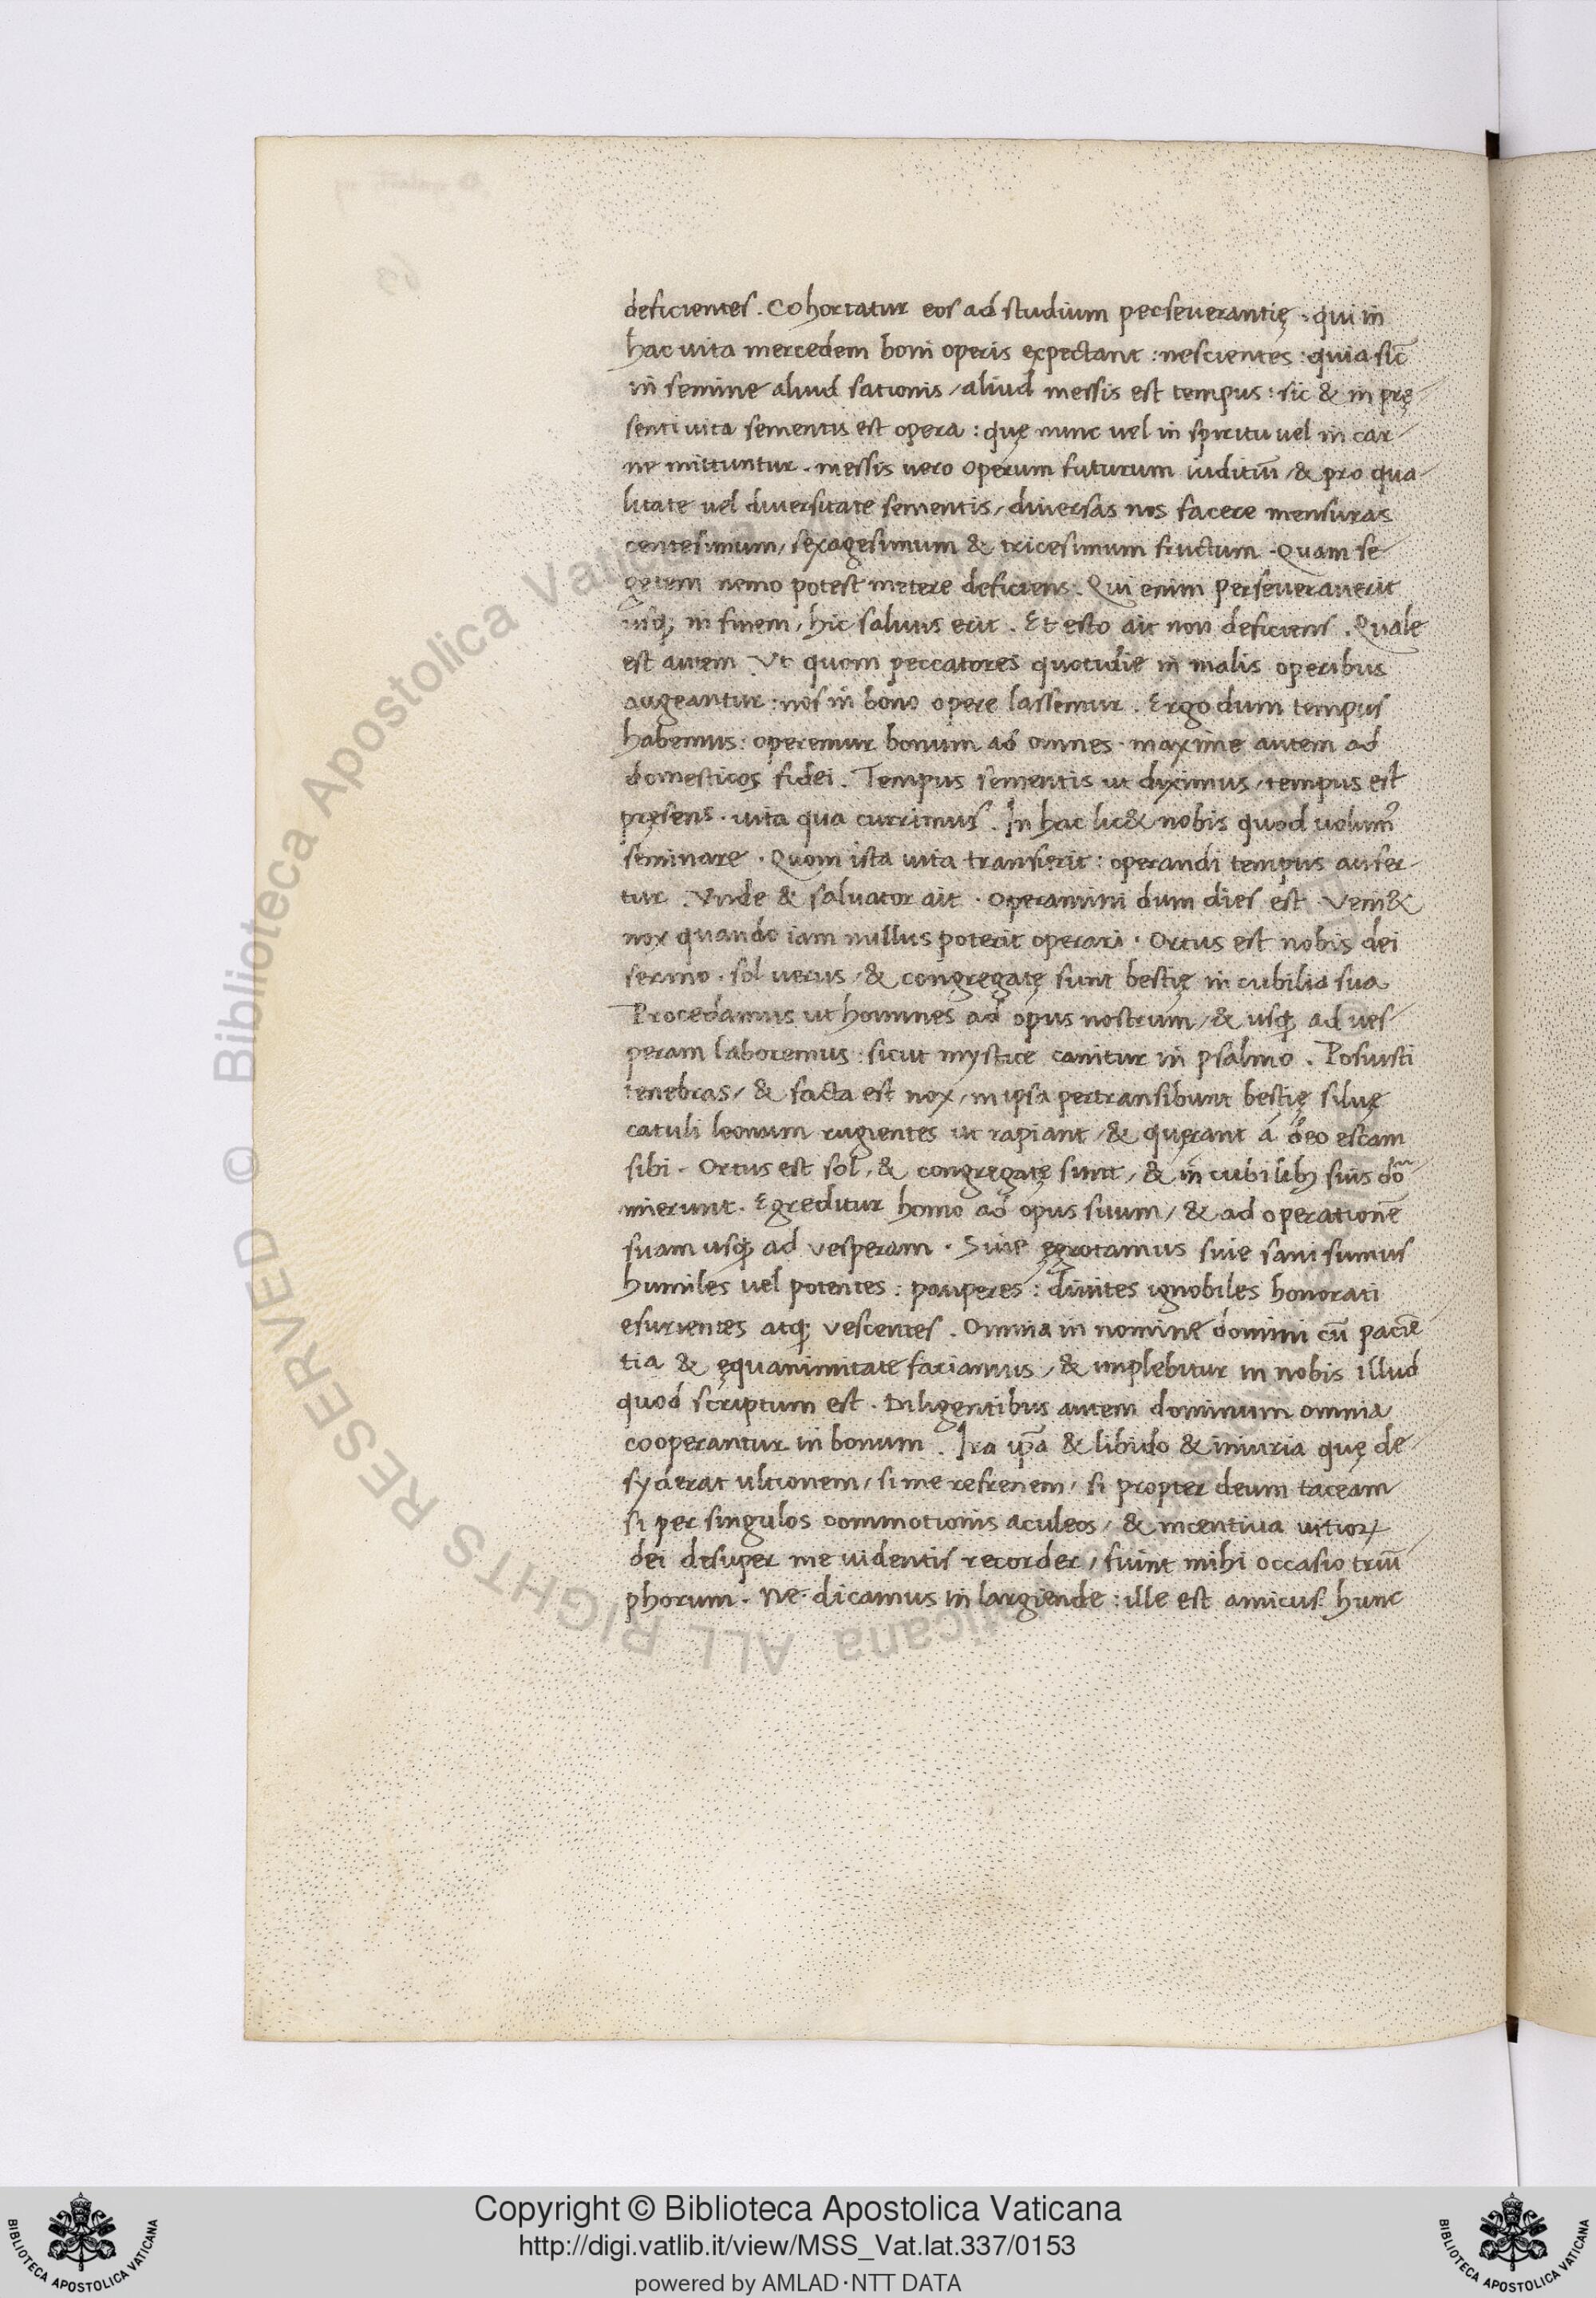 deficientes. Cohortatur eos ad studium perseverantię. qui in
hac vita mercedem boni operis expectant: nescientes: quia sic
in semine aliud sationis, aliud messis est tempus: sic & in prę-
senti vita sementis est opera: quę nunc vel in spiritu vel in car-
ne mittuntur. messis vero operum futurum iuditiū, & pro qua-
litate vel diversitate sementis, diversas nos facere mensuras
centesimum, sexagesimum & tricesimum fructum. Quam se-
getem nemo potest metere deficiens. Qui enim perseveraverit
usq; in finem, hic salvus erit. Et esto ait non deficiens. Quale
est autem Ut quom peccatores quotidie in malis operibus
augeantur: nos in bono opere lassemur. Ergo dum tempus
habemus: operemur bonum ad omnes. maxime autem ad
domesticos fidei. Tempus sementis ut diximus, tempus est
pręsens. vita qua currimus. In hac lic& nobis quod volum9
seminare. Quom ista vita transierit: operandi tempus aufer-
tur. Unde & salvator ait. Operamini dum dies est. Veni&
nox quando iam nullus poterit operari. Ortus est nobis dei
sermo. sol verus, & congregatę sunt bestię in cubilia sua
Procedamus ut homines ad opus nostrum, & usq; ad ves-
peram laboremus: sicut mystice canitur in psalmo. Posuisti
tenebras, & facta est nox, in ipsa pertransibunt bestię silvę
catuli leonum rugientes ut rapiant, & quęrant á deo escam
sibi. Ortus est sol, & congregatę sunt, & in cubilib; suis do
mierunt. Egreditur homo ad opus suum, & ad operationē
suam usq; ad vesperam. Sive ęgrotamus sive sani sumus
humiles vel potentes: pauperes: divites ignobiles honorati
esurientes atq; vescentes. Omnia in nomine domini cū paciē-
tia & ęquanimitate faciamus, & implebitur in nobis illud
quod scriptum est. Diligentibus autem dominum omnia
cooperantur in bonum. Ira ip̄a & libido & iniuria quę de-
syderat ultionem, si me refrenem, si propter deum taceam
si per singulos commotionis aculeos, & incentiva vitioꝝ
dei desuper me videntis recorder, fiunt mihi occasio triū-
phorum. Ne dicamus in largiende: ille est amicus. hunc
Copyright © Biblioteca Apostolica Vaticana
http://digi.vatlib.it/view/MSS_Vat.lat.337/0153
powered by AMLAD·NTT DATA
BIBLIOTECA APOSTOLICA VATICANA
BIBLIOTECA APOSTOLICA VATICANA
© Biblioteca Apostolica Vaticana
ALL RIGHTS RESERVED